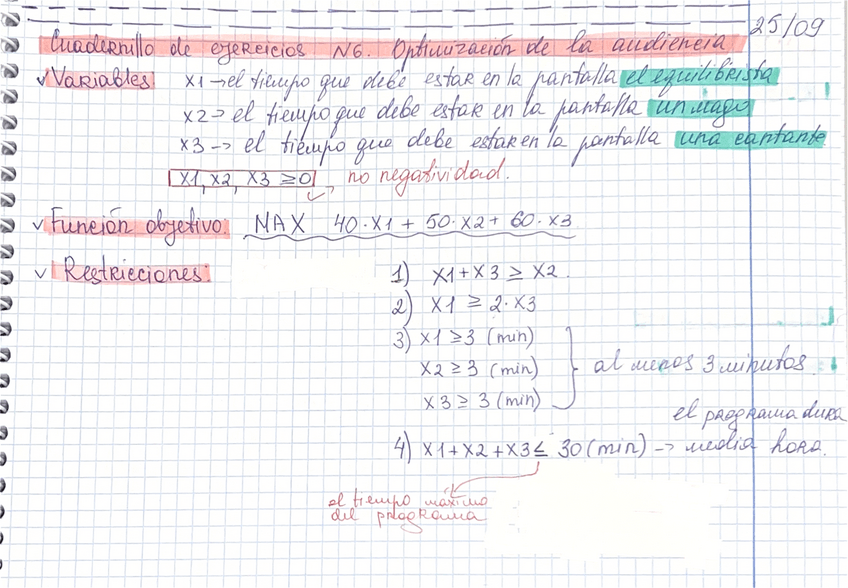 25/09
Cuadernillo de ejercicios N6. Optimización de la audiencia
√ Variables x1 → el tiempo que debe estar en la pantalla el equilibrista
x2 → el tiempo que debe estar en la pantalla un mago
x3 → el tiempo que debe estar en la pantalla una cantante
x1, x2, x3 ≥ 0 no negatividad.
√ Función objetivo: MAX 40·x1 + 50·x2 + 60·x3
√ Restricciones: 1) x1 + x3 ≥ x2.
2) x1 ≥ 2·x3
3) x1 ≥ 3 (min)
x2 ≥ 3 (min) } al menos 3 minutos.
x3 ≥ 3 (min)
el programa dura
4) x1 + x2 + x3 ≤ 30 (min) → media hora.
el tiempo máximo
del programa